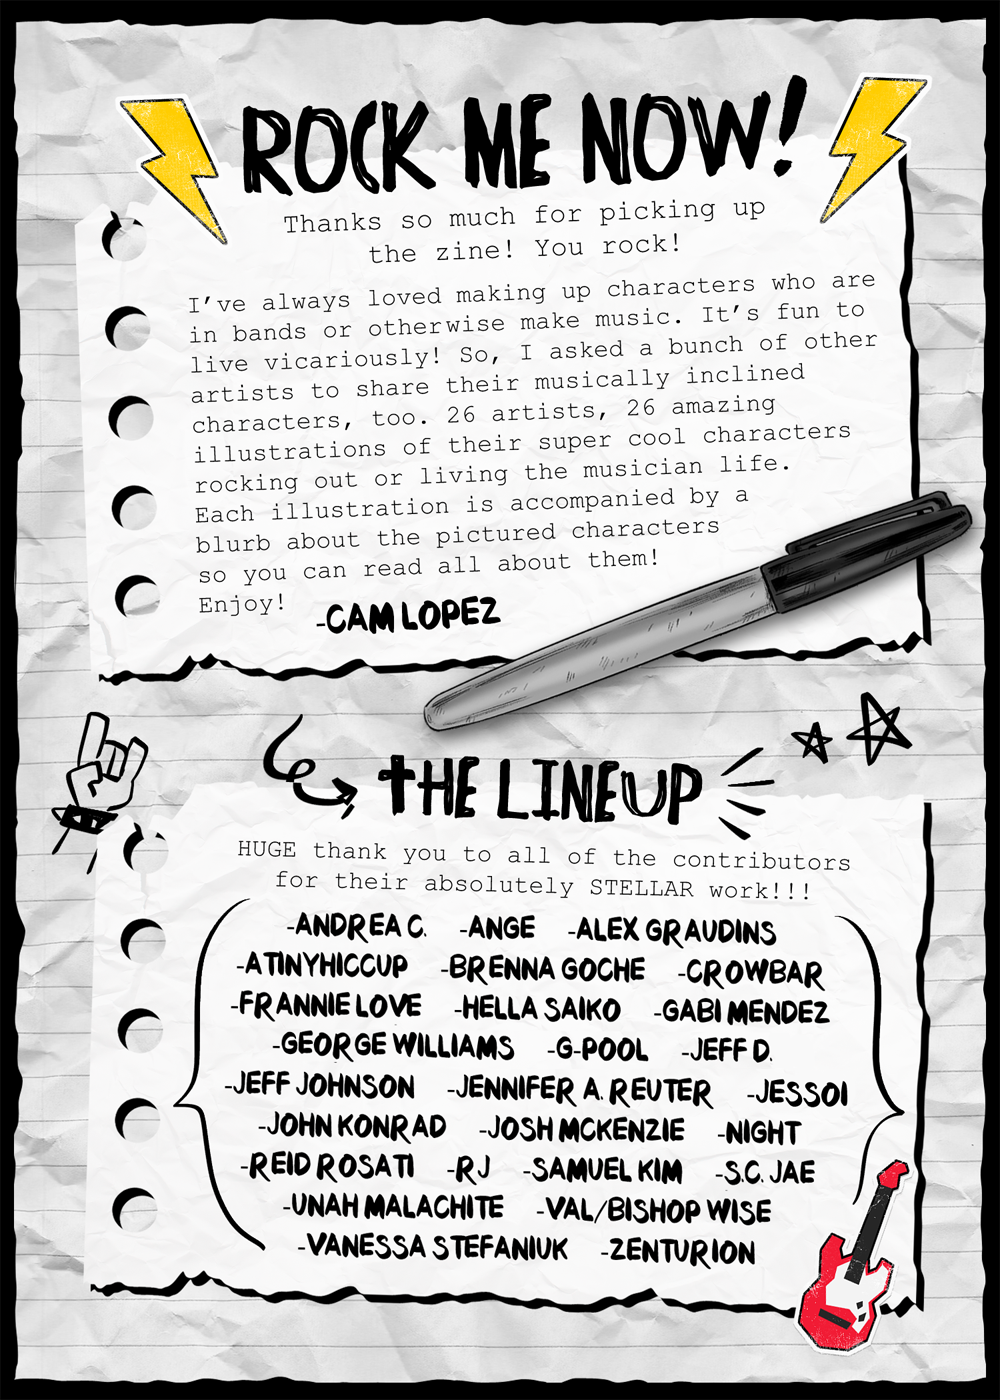 ROCK ME NOW!
Thanks so much for picking up
the zine! You rock!
I've always loved making up characters who are
in bands or otherwise make music. It's fun to
live vicariously! So, I asked a bunch of other
artists to share their musically inclined
characters, too. 26 artists, 26 amazing
illustrations of their super cool characters
rocking out or living the musician life.
Each illustration is accompanied by a
blurb about the pictured characters
so you can read all about them!
Enjoy! -CAM LOPEZ
THE LINEUP
HUGE thank you to all of the contributors
for their absolutely STELLAR work!!!
-ANDREA C. -ANGE -ALEX GRAUDINS
-ATINYHICCUP -BRENNA GOCHE -CROWBAR
-FRANNIE LOVE -HELLA SAIKO -GABI MENDEZ
-GEORGE WILLIAMS -G-POOL -JEFF D.
-JEFF JOHNSON -JENNIFER A. REUTER -JESSOI
-JOHN KONRAD -JOSH MCKENZIE -NIGHT
-REID ROSATI -RJ -SAMUEL KIM -S.C. JAE
-UNAH MALACHITE -VAL/BISHOP WISE
-VANESSA STEFANIUK -ZENTURION